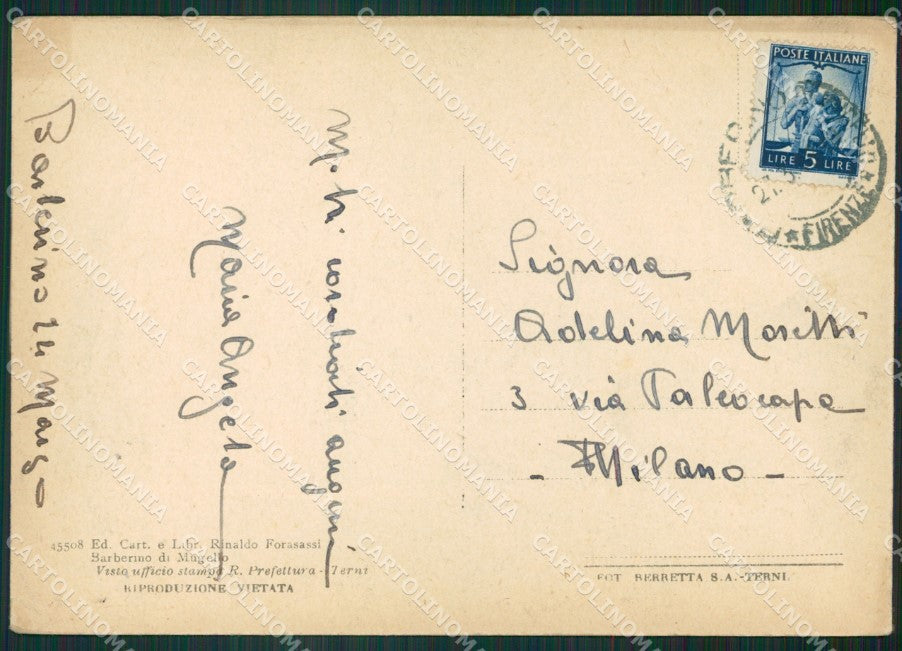 Barberino 24 Marzo
cordiali auguri
Maria Angela
POSTE ITALIANE
LIRE 5 LIRE
FIRENZE
Signora
Adelina Moretti
3 via Paleocapa
- Milano -
45508 Ed. Cart. e Libr. Rinaldo Forasassi
Barberino di Mugello
Visto ufficio stampa R. Prefettura - Terni
RIPRODUZIONE VIETATA
FOT BERRETTA S.A.-TERNI
CARTOLINOMANIA